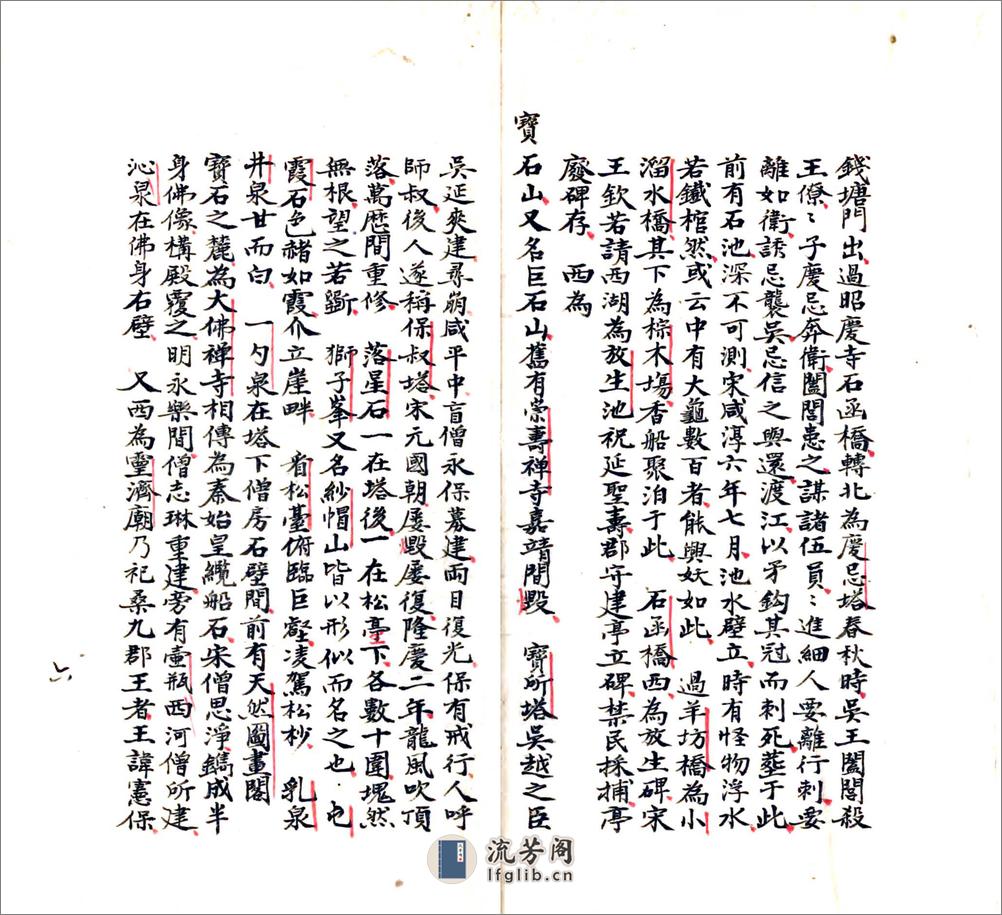 錢塘門出過昭慶寺石函橋轉北為慶忌塔春秋時吳王闔閭殺
王僚〻子慶忌奔衛闔閭患之謀諸伍員〻進細人要離行刺要
離如衛誘忌襲吳忌信之與還渡江以矛鈎其冠而刺死塟于此
前有石池深不可測宋咸淳六年七月池水壁立時有怪物浮水
若鐵棺然或云中有大龜數百者能興妖如此　過羊坊橋為小
溜水橋其下為棕木塲香船聚泊于此　石函橋西為放生碑宋
王欽若請西湖為放生池祝延聖壽郡守建亭立碑禁民採捕亭
廢碑存　西為
寶石山又名巨石山舊有崇壽禅寺嘉靖間毀　寶所塔吳越之臣
吳延爽建尋崩咸平中盲僧永保募建両目復光保有戒行人呼
師叔後人遂稱保叔塔宋元國朝屢毀屢復隆慶二年龍風吹頂
落萬歷間重修　落星石一在塔後一在松亭下各數十圍塊然
無根望之若斷　獅子峯又名紗帽山皆以形似而名之也　屯
霞石色赭如霞介立崖畔　看松臺俯臨巨壑凌駕松杪　乳泉
井泉甘而白　一勺泉在塔下僧房石壁間前有天然圖畫閣
寶石之麓為大佛禅寺相傳為秦始皇纜船石宋僧思淨鐫成半
身佛像構殿覆之明永樂間僧志琳重建旁有壷瓶西河僧所建
沁泉在佛身右壁　又西為靈濟廟乃祀桑九郡王者王諱憲保
六
流芳阁
lfglib.cn